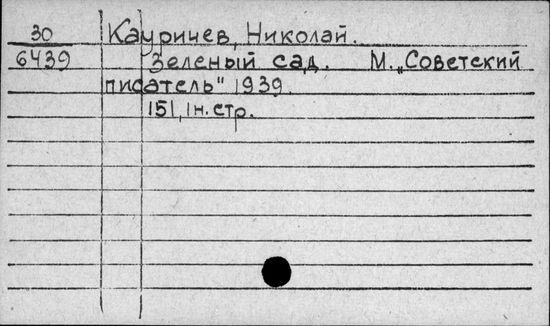 30 Кауричев, Николай.
6439 Зеленый сад. М. „Советский
писатель" 1939.
151, 1 н. стр.